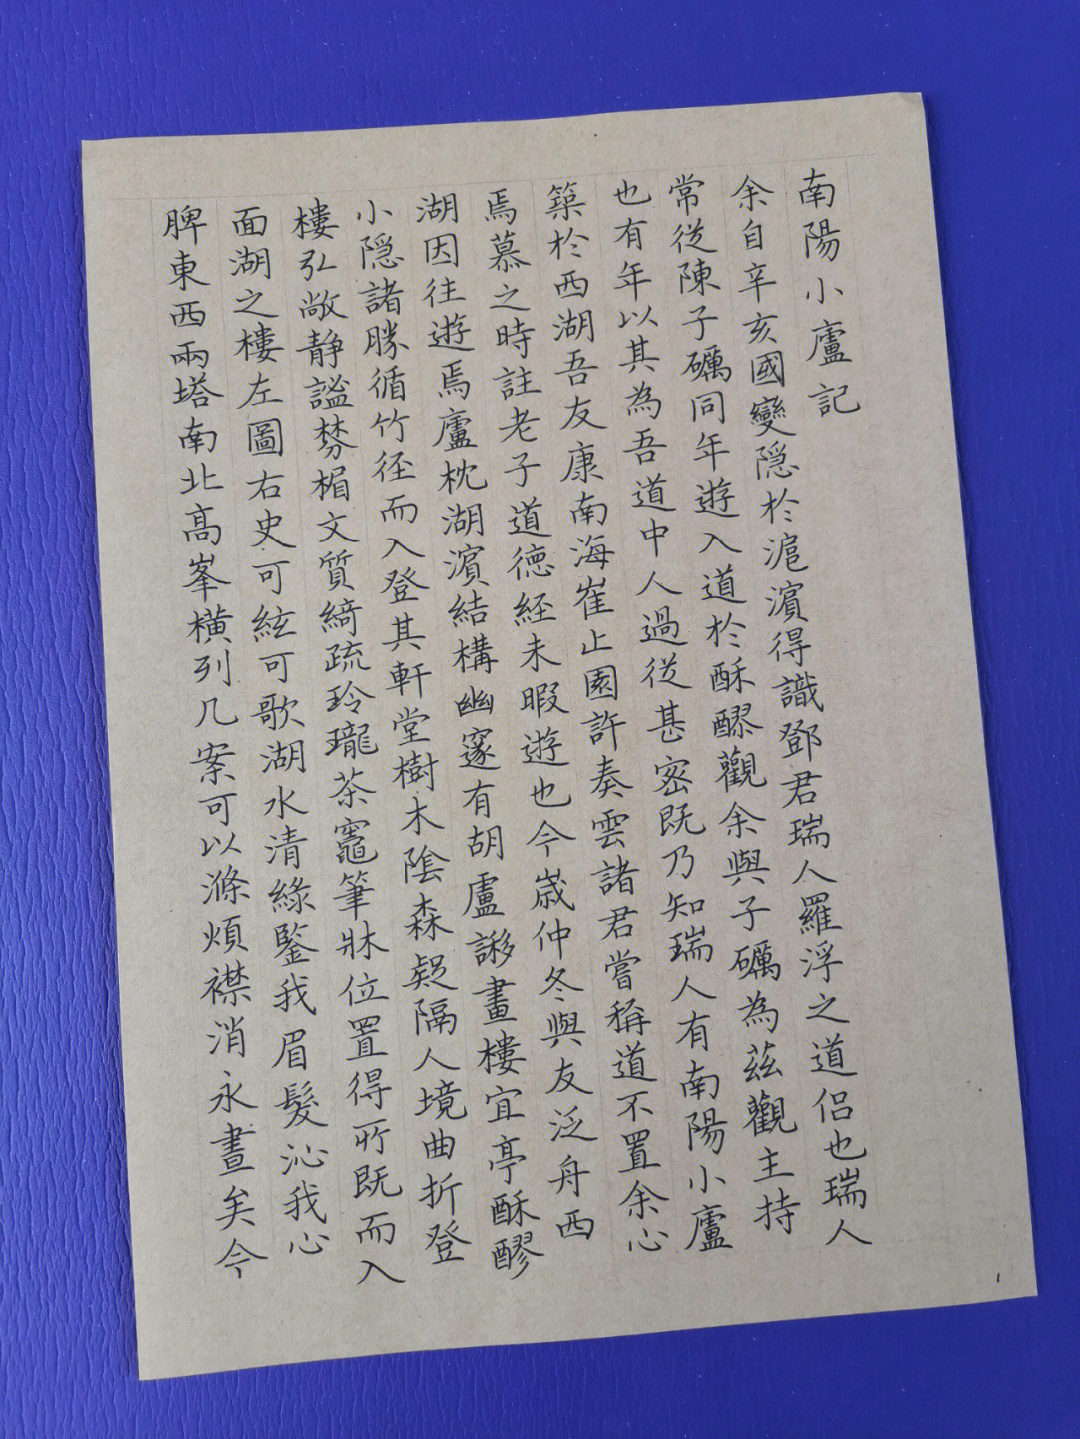 南陽小廬記
余自辛亥國變隠於滬濵得識鄧君瑞人羅浮之道侣也瑞人
常従陳子礪同年遊入道於酥醪觀余與子礪為茲觀主持
也有年以其為吾道中人過従甚密既乃知瑞人有南陽小廬
築於西湖吾友康南海崔止園許奏雲諸君嘗稱道不置余心
焉慕之時註老子道德経未暇遊也今歳仲冬與友泛舟西
湖因往遊焉廬枕湖濵結構幽邃有胡盧謻畫樓宜亭酥醪
小隠諸勝循竹径而入登其軒堂樹木陰森疑隔人境曲折登
樓弘敞静謐棼楣文質綺疏玲瓏茶竈筆牀位置得所既而入
面湖之樓左圖右史可絃可歌湖水清綠鑒我眉髮沁我心
脾東西兩塔南北高峯横列几案可以滌煩襟消永晝矣今
1